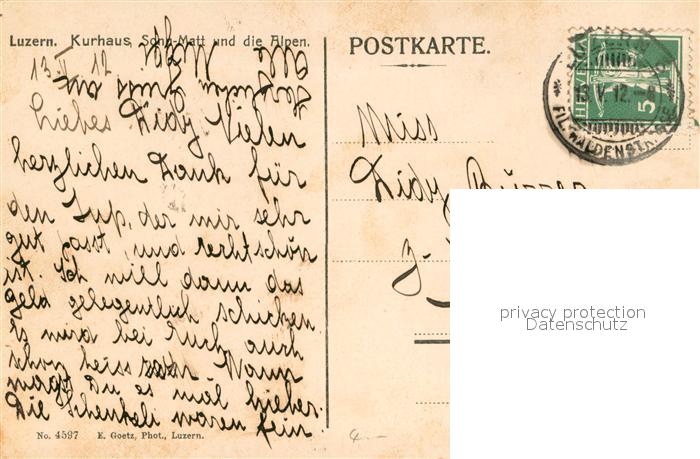 Luzern. Kurhaus Sonn-Matt und die Alpen.
POSTKARTE.
13 V 12
Liebes Didy Vielen
herzlichen Dank für
den Jup, der mir sehr
gut passt und recht schön
ist. Ich will dann das
Geld gelegentlich schicken.
Es wird bei Euch auch
schon heiss Wann
magst Du es mal hieher.
Die Schenkeli waren fein
Miss
Didy
HELVETIA
5
LUZERN
13.V.12.-8
FIL. WALDENSTR.
No. 4597 E. Goetz, Phot., Luzern.
privacy protection
Datenschutz